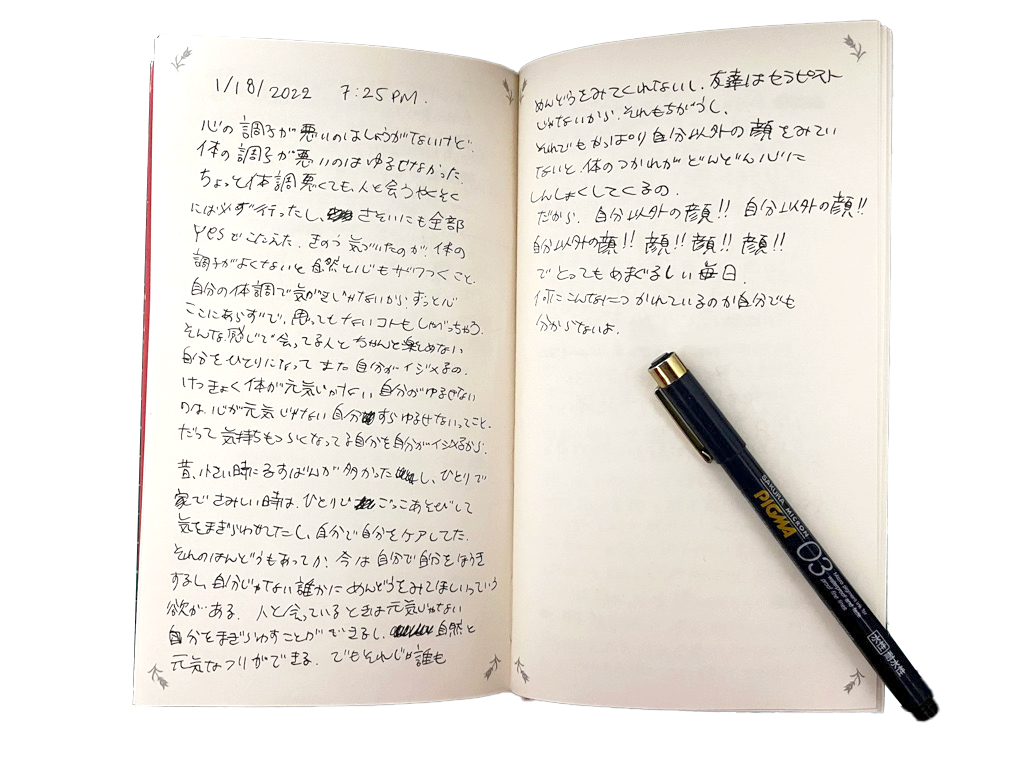 1/18/2022 7:25PM.
心の調子が悪いのはしょうがないけど.
体の調子が悪いのはゆるせなかった.
ちょっと体調悪くても、人と会うやくそく
には必ず行ったし、さそいにも全部
yesでこたえた. きのう気づいたのが、体の
調子がよくないと自然と心もザワつくこと.
自分の体調で気が気じゃないから、ずっと心
ここにあらずで、思ってもないコトもしゃべっちゃう.
そんな感じで会ってる人とちゃんと楽しめない
自分をひとりになってまた自分がイジメるの.
けっきょく体が元気じゃない、自分がゆるせない
のは、心が元気じゃない自分すらゆるせないってこと.
だって気持ちもつらくなってる自分を自分がイジメるから.
昔、小さい時にるすばんが多かったし、ひとりで
家でさみしい時は、ひとりじごっこあそびして
気をまぎらわせてたし、自分で自分をケアしてた.
それのはんどうもあってか、今は自分で自分をほうき
するし、自分じゃない誰かにめんどうをみてほしいっていう
欲がある. 人と会っているときは元気じゃない
自分をまぎらわすことができるし、自然と
元気なフリができる. でもそれじゃ誰も
めんどうをみてくれないし、友達はセラピスト
じゃないから、それもちがうし、
それでもやっぱり自分以外の顔をみてい
ないと、体のつかれがどんどん心に
しんしょくしてくるの.
だから、自分以外の顔!! 自分以外の顔!!
自分以外の顔!! 顔!! 顔!! 顔!!
でとってもめまぐるしい毎日.
何にこんなにつかれているのか自分でも
分からないよ.
SAKURA MICRON
PIGMA 03
水性 耐水性